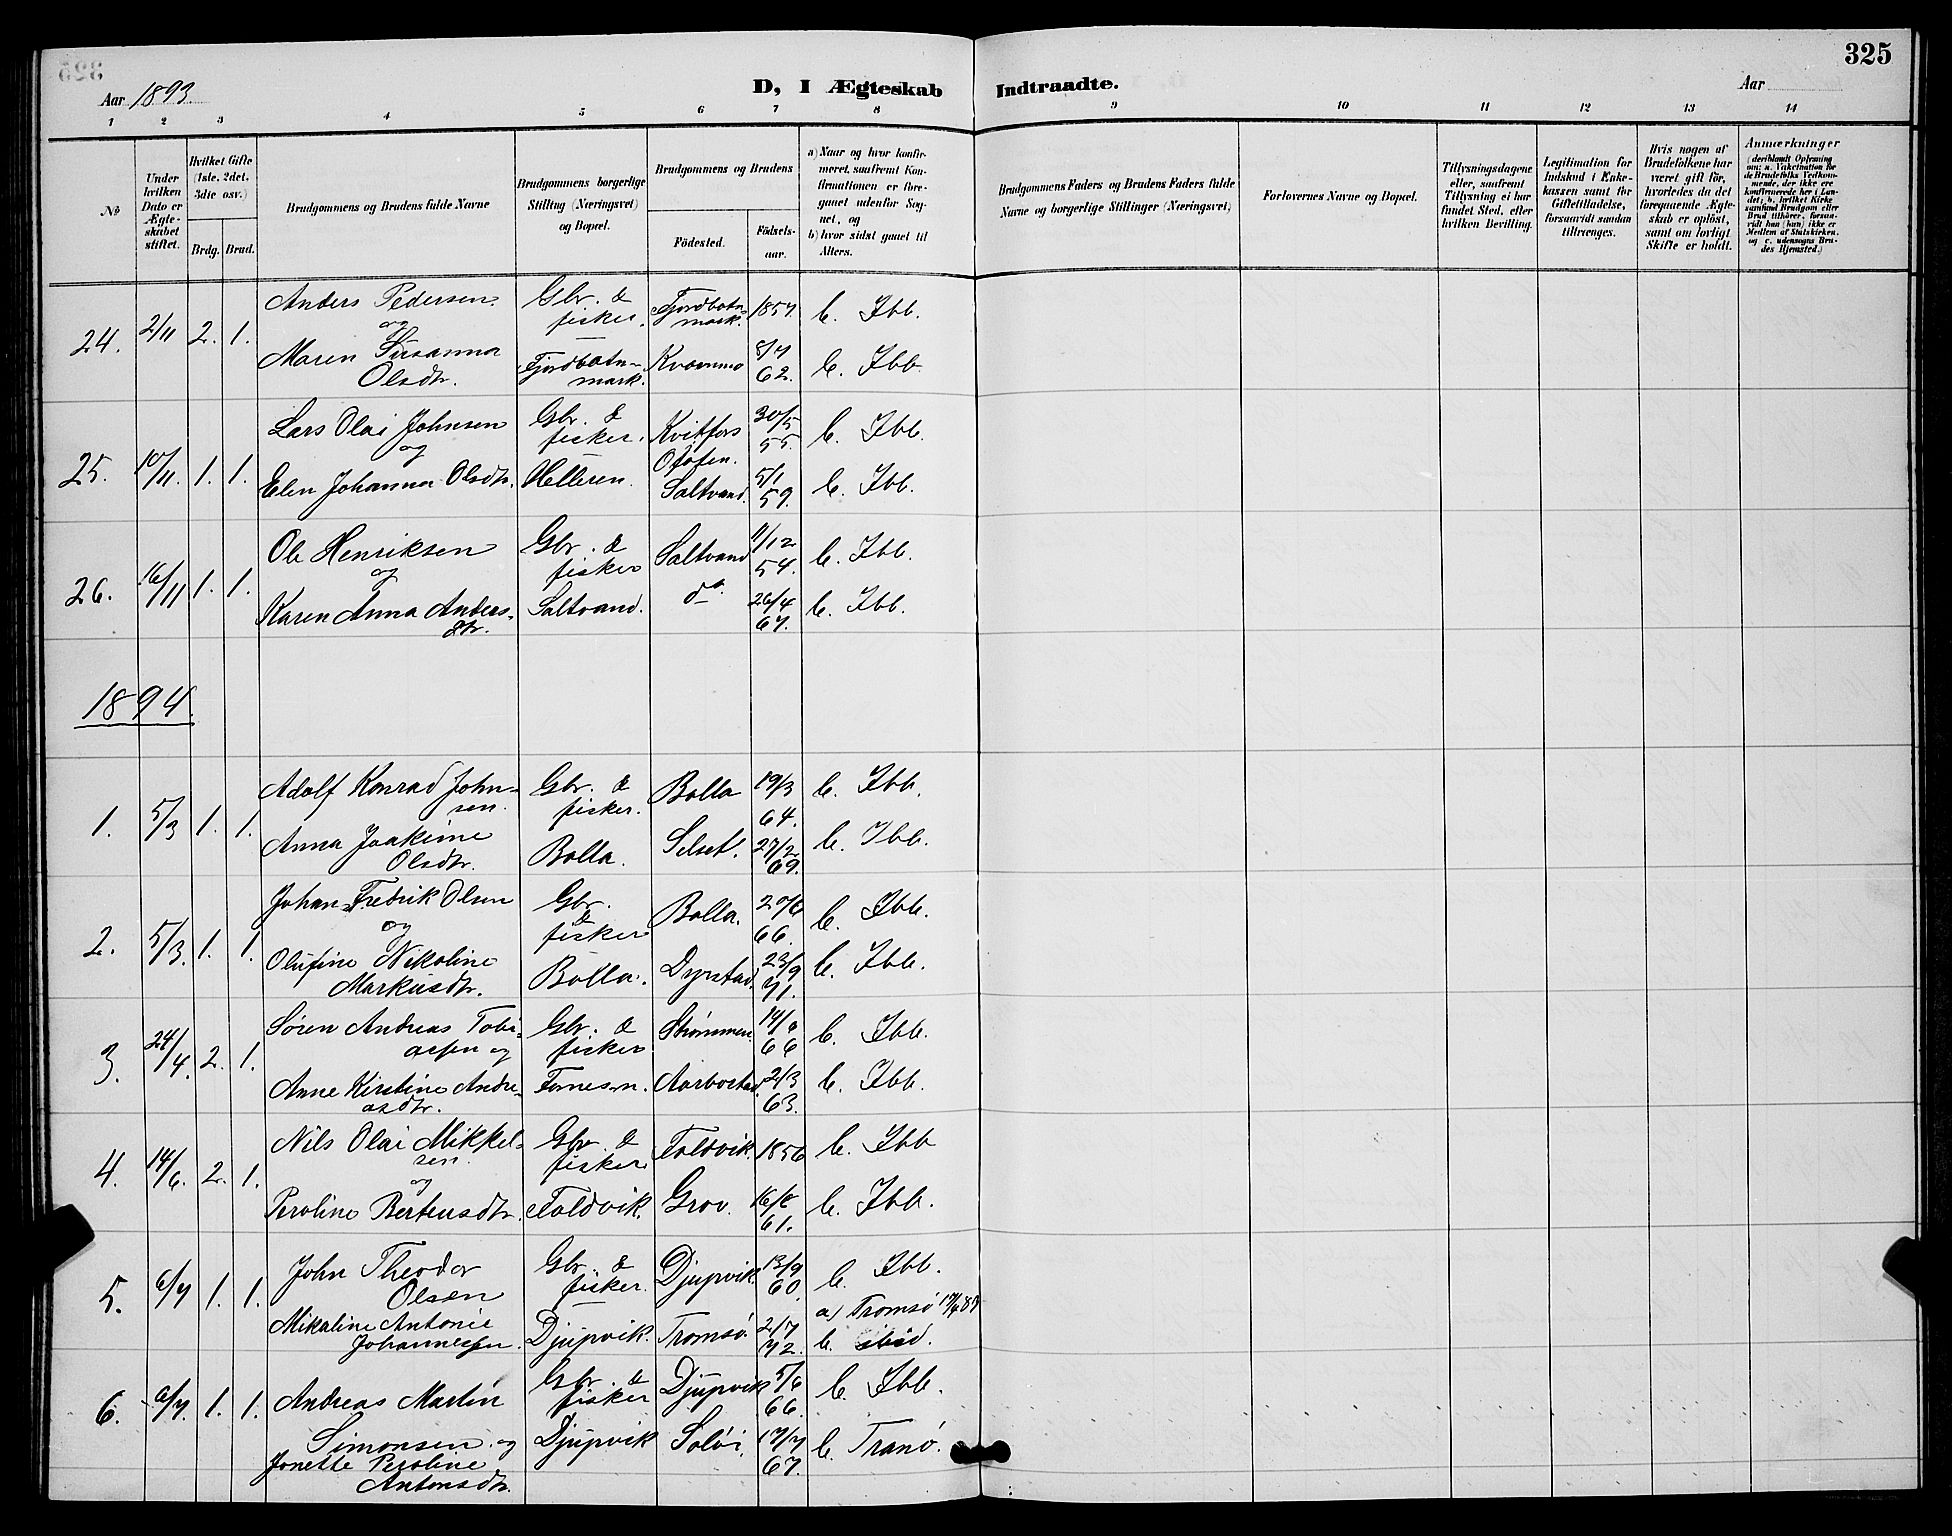 325
Aar 1893. D, I Ægteskab Indtraadte. Aar
1 2 3 4 5 6 7 8 9 10 11 12 13 14
№
Under hvilken Dato er Ægteskabet stiftet.
Hvilket Gifte (1ste, 2det, 3die osv.)
Brdg. Brud.
Brudgommens og Brudens fulde Navne
Brudgommens borgerlige Stilling (Næringsvei) og Bopæl.
Brudgommens og Brudens
Födested. Födselsaar.
a) Naar og hvor konfirmeret, saafremt Konfirmationen er foregaaet udenfor Sognet, og
b) hvor sidst gaaet til Alters.
Brudgommens Faders og Brudens Faders fulde Navne og borgerlige Stillinger (Næringsvei)
Forlovernes Navne og Bopæl.
Tillysningsdagene eller, saafremt Tillysning ei har fundet Sted, efter hvilken Bevilling.
Legitimation for Indskud i Enkekassen samt for Giftetilladelse, forsaavidt saadan tiltrænges.
Hvis nogen af Brudefolkene har været gift før, hvorledes da det foregaaende Ægteskab er oplöst, samt om lovligt Skifte er holdt.
Anmærkninger
(deriblandt Oplysning om: a. Vakcination for de Brudefolks Vedkommende, der ikke ere konfirmerede her i Landet; b. hvilket Kirkesamfund Brudgom eller Brud tilhører, forsaavidt han (hun) ikke er Medlem af Statskirken, og c. udensogns Brudes Hjemsted.)
24. 2/11 2. 1. Anders Pedersen og Gbr. & fisker. Fjordbotnmark. 1857. b. Ibb.
Maren Susanna Olsdtr. Fjordbotnmark. Kvammo 8/7 62. b. Ibb.
25. 10/11. 1. 1. Lars Olai Johnsen og Gbr. & fisker. Kvitfors Ofoten. 30/5 55. b. Ibb.
Elen Johanna Olsdtr. Helleren. Saltvand. 5/1 59. b. Ibb.
26. 16/11 1. 1. Ole Henriksen og Gbr. & fisker Saltvand 11/12 54. b. Ibb.
Karen Anna Andersdtr. Saltvand. do. 26/4 67. b. Ibb.
1894.
1. 5/3 1. 1. Adolf Konrad Johnsen. Gbr. & fisker. Bolla 19/3 64. b. Ibb.
Anna Joakime Olsdtr. Bolla. Selset. 27/2 69. b. Ibb.
2. 5/3. 1. 1. Johan Fredrik Olsen og Gbr. & fisker Bolla. 20/6 66. b. Ibb.
Olufine Nikoline Markusdtr. Bolla. Dyrstad. 23/9 71. b. Ibb.
3. 24/4. 2. 1. Søren Andreas Tobiassen og Gbr. & fisker Strømmen 14/6 66 b. Ibb.
Anne Kirstine Andreasdtr. Fornesm. Aarbostad 2/3 63. b. Ibb.
4. 14/6. 2. 1. Nils Olai Mikkelsen. og Gbr. & fisker Foldvik 1856 b. Ibb
Peroline Berteusdtr. Foldvik. Grov. 61. b. Ibb.
5. 6/7 1. 1. John Theodor Olsen Gbr. & fisker. Djupvik 13/9 60. b. Ibb.
Mikaline Antonie Johannessen. Djupvik. Tromsø. 2/7 72. a) Tromsø
b. ibid.
6. 6/7. 1. 1. Andreas Martin Simonsen og Gbr. & fisker Djupvik 5/6 66. b. Ibb.
Jonette Peroline Antonsdtr. Djupvik Soløi 17/7 67. b. Tranø.